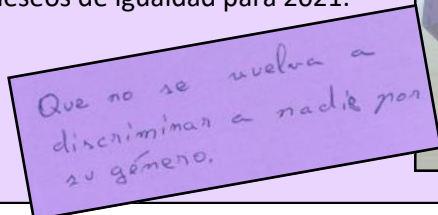 deseos de igualdad para 2021:
Que no se vuelva a
discriminar a nadie por
su género.